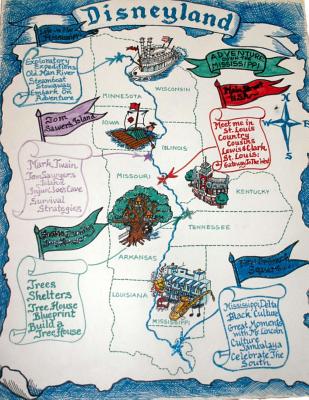 Disneyland
Life on the
Mississippi
Exploratory
Expeditions
Old Man River
Steamboat
Stowaway
Embark On
Adventure
ADVENTURE
DOWN THE
MISSISSIPPI
Main Street
Meet me in
St. Louis
Country
Cousins
Lewis & Clark
St. Louis:
Gateway To The West
MINNESOTA
WISCONSIN
Tom
Sawyers Island
IOWA
ILLINOIS
Mark Twain
Tom Sawyers
Island
Injun Joe's Cave
Survival
Strategies
MISSOURI
KENTUCKY
TENNESSEE
Swiss Family
ARKANSAS
Trees
Shelters
Tree House
Blueprint
Build a
Tree House
LOUISIANA
MISSISSIPPI
New Orleans
Square
Mississippi Delta
Black Culture
Great Moments
with Mr. Lincoln
Culture
Jambalaya
Celebrate The
South